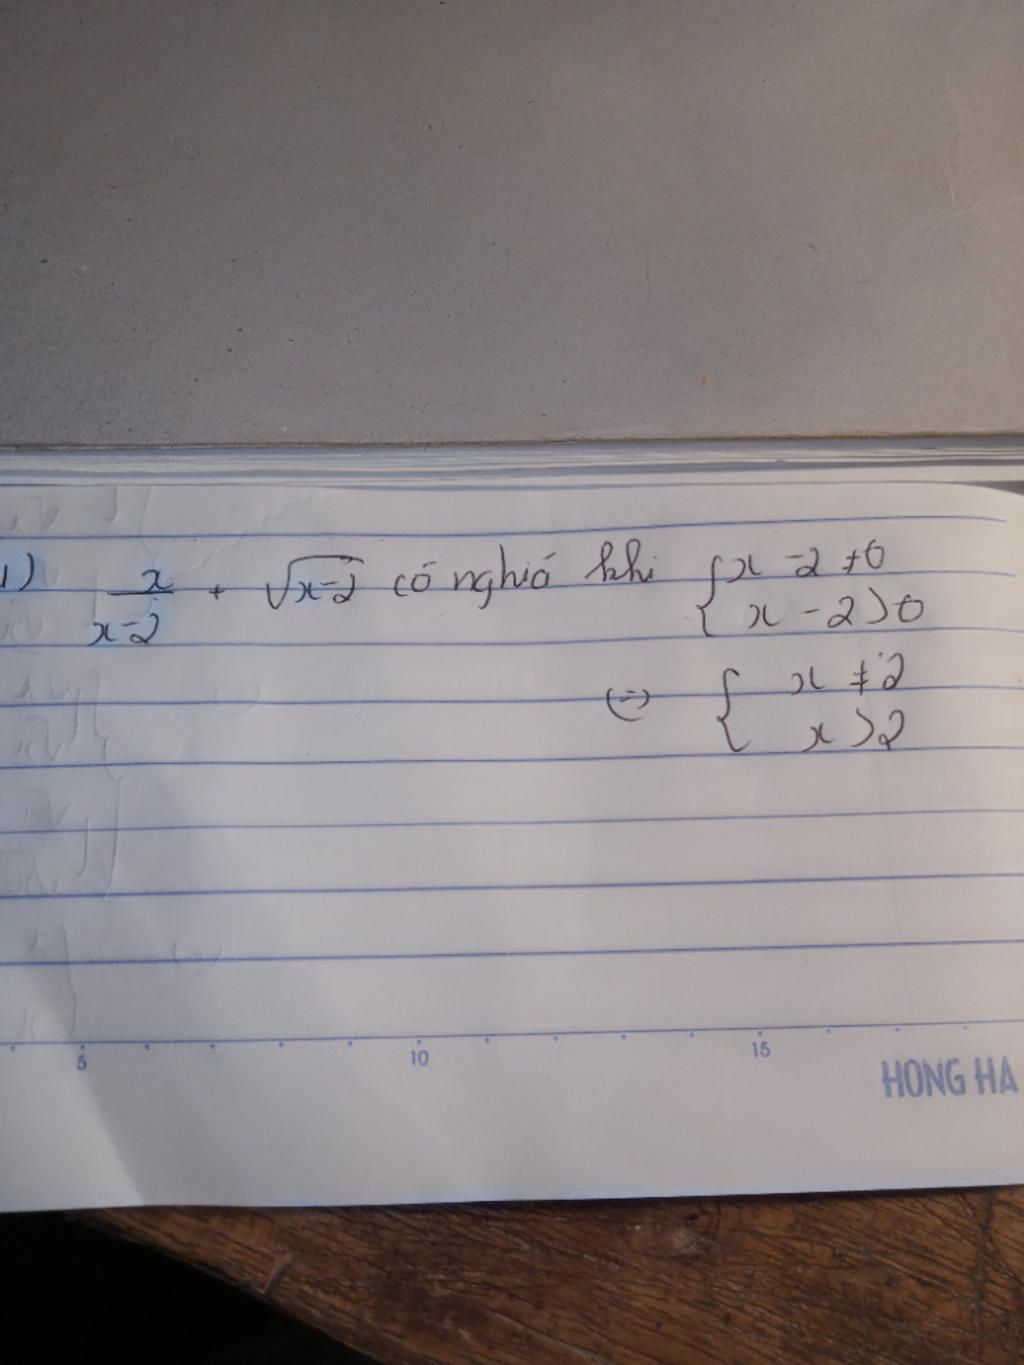 1) x/(x-2) + √(x-2) có nghiã khi { x - 2 ≠ 0
x - 2 > 0
(=) { x ≠ 2
x > 2
5 10 15
HONG HA